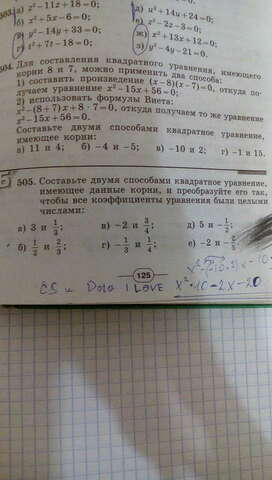 503. а) x² − 11x + 18 = 0;
б) x² + 5x − 6 = 0;
y² − 14y + 33 = 0;
z² + 7z − 18 = 0;
д) u² + 14u + 24 = 0;
е) x² − 2x − 3 = 0;
ж) x² + 13x + 12 = 0;
з) y² − 4y − 21 = 0.
504. Для составления квадратного уравнения, имеющего
корни 8 и 7, можно применить два способа:
1) составить произведение (x − 8)(x − 7) = 0, откуда по-
лучаем уравнение x² − 15x + 56 = 0;
2) использовать формулы Виета:
x² − (8 + 7)x + 8 · 7 = 0, откуда получаем то же уравнение
x² − 15x + 56 = 0.
Составьте двумя способами квадратное уравнение,
имеющее корни:
а) 11 и 4; б) −4 и −5; в) −10 и 2; г) −1 и 15.
505. Составьте двумя способами квадратное уравнение,
имеющее данные корни, и преобразуйте его так,
чтобы все коэффициенты уравнения были целыми
числами:
а) 3 и 1/3; в) −2 и 3/4; д) 5 и −1/2;
б) 1/2 и 2/3; г) −1/3 и 1/4; е) −2 и −2/3
125
I LOVE x² + 10 − 2x − 20